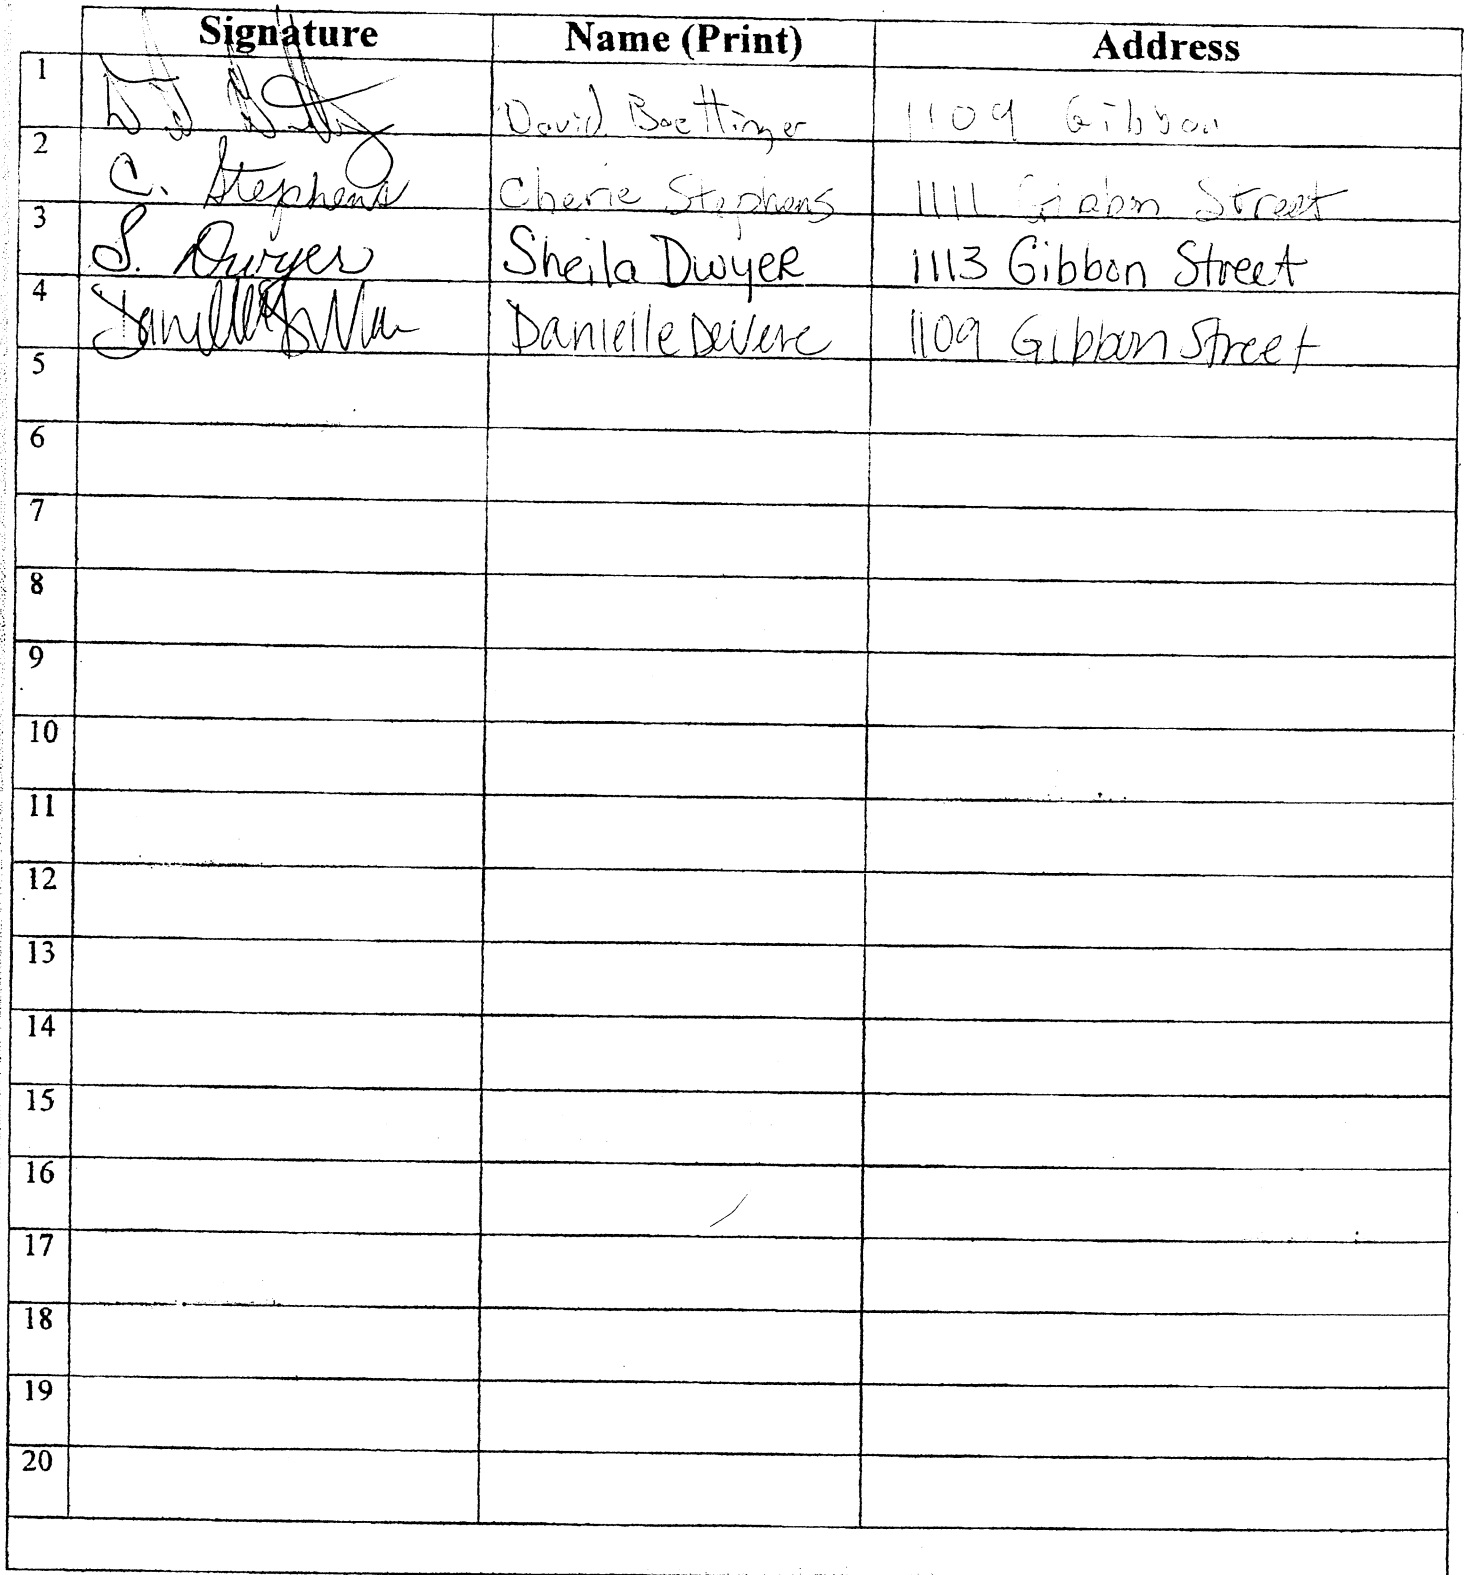 Signature Name (Print) Address
1 David Boettinger 1109 Gibbon
2 C. Stephens Cherie Stephens 1111 Gibbon Street
3 S. Dwyer Sheila Dwyer 1113 Gibbon Street
4 Danielle DeVere 1109 Gibbon Street
5
6
7
8
9
10
11
12
13
14
15
16
17
18
19
20